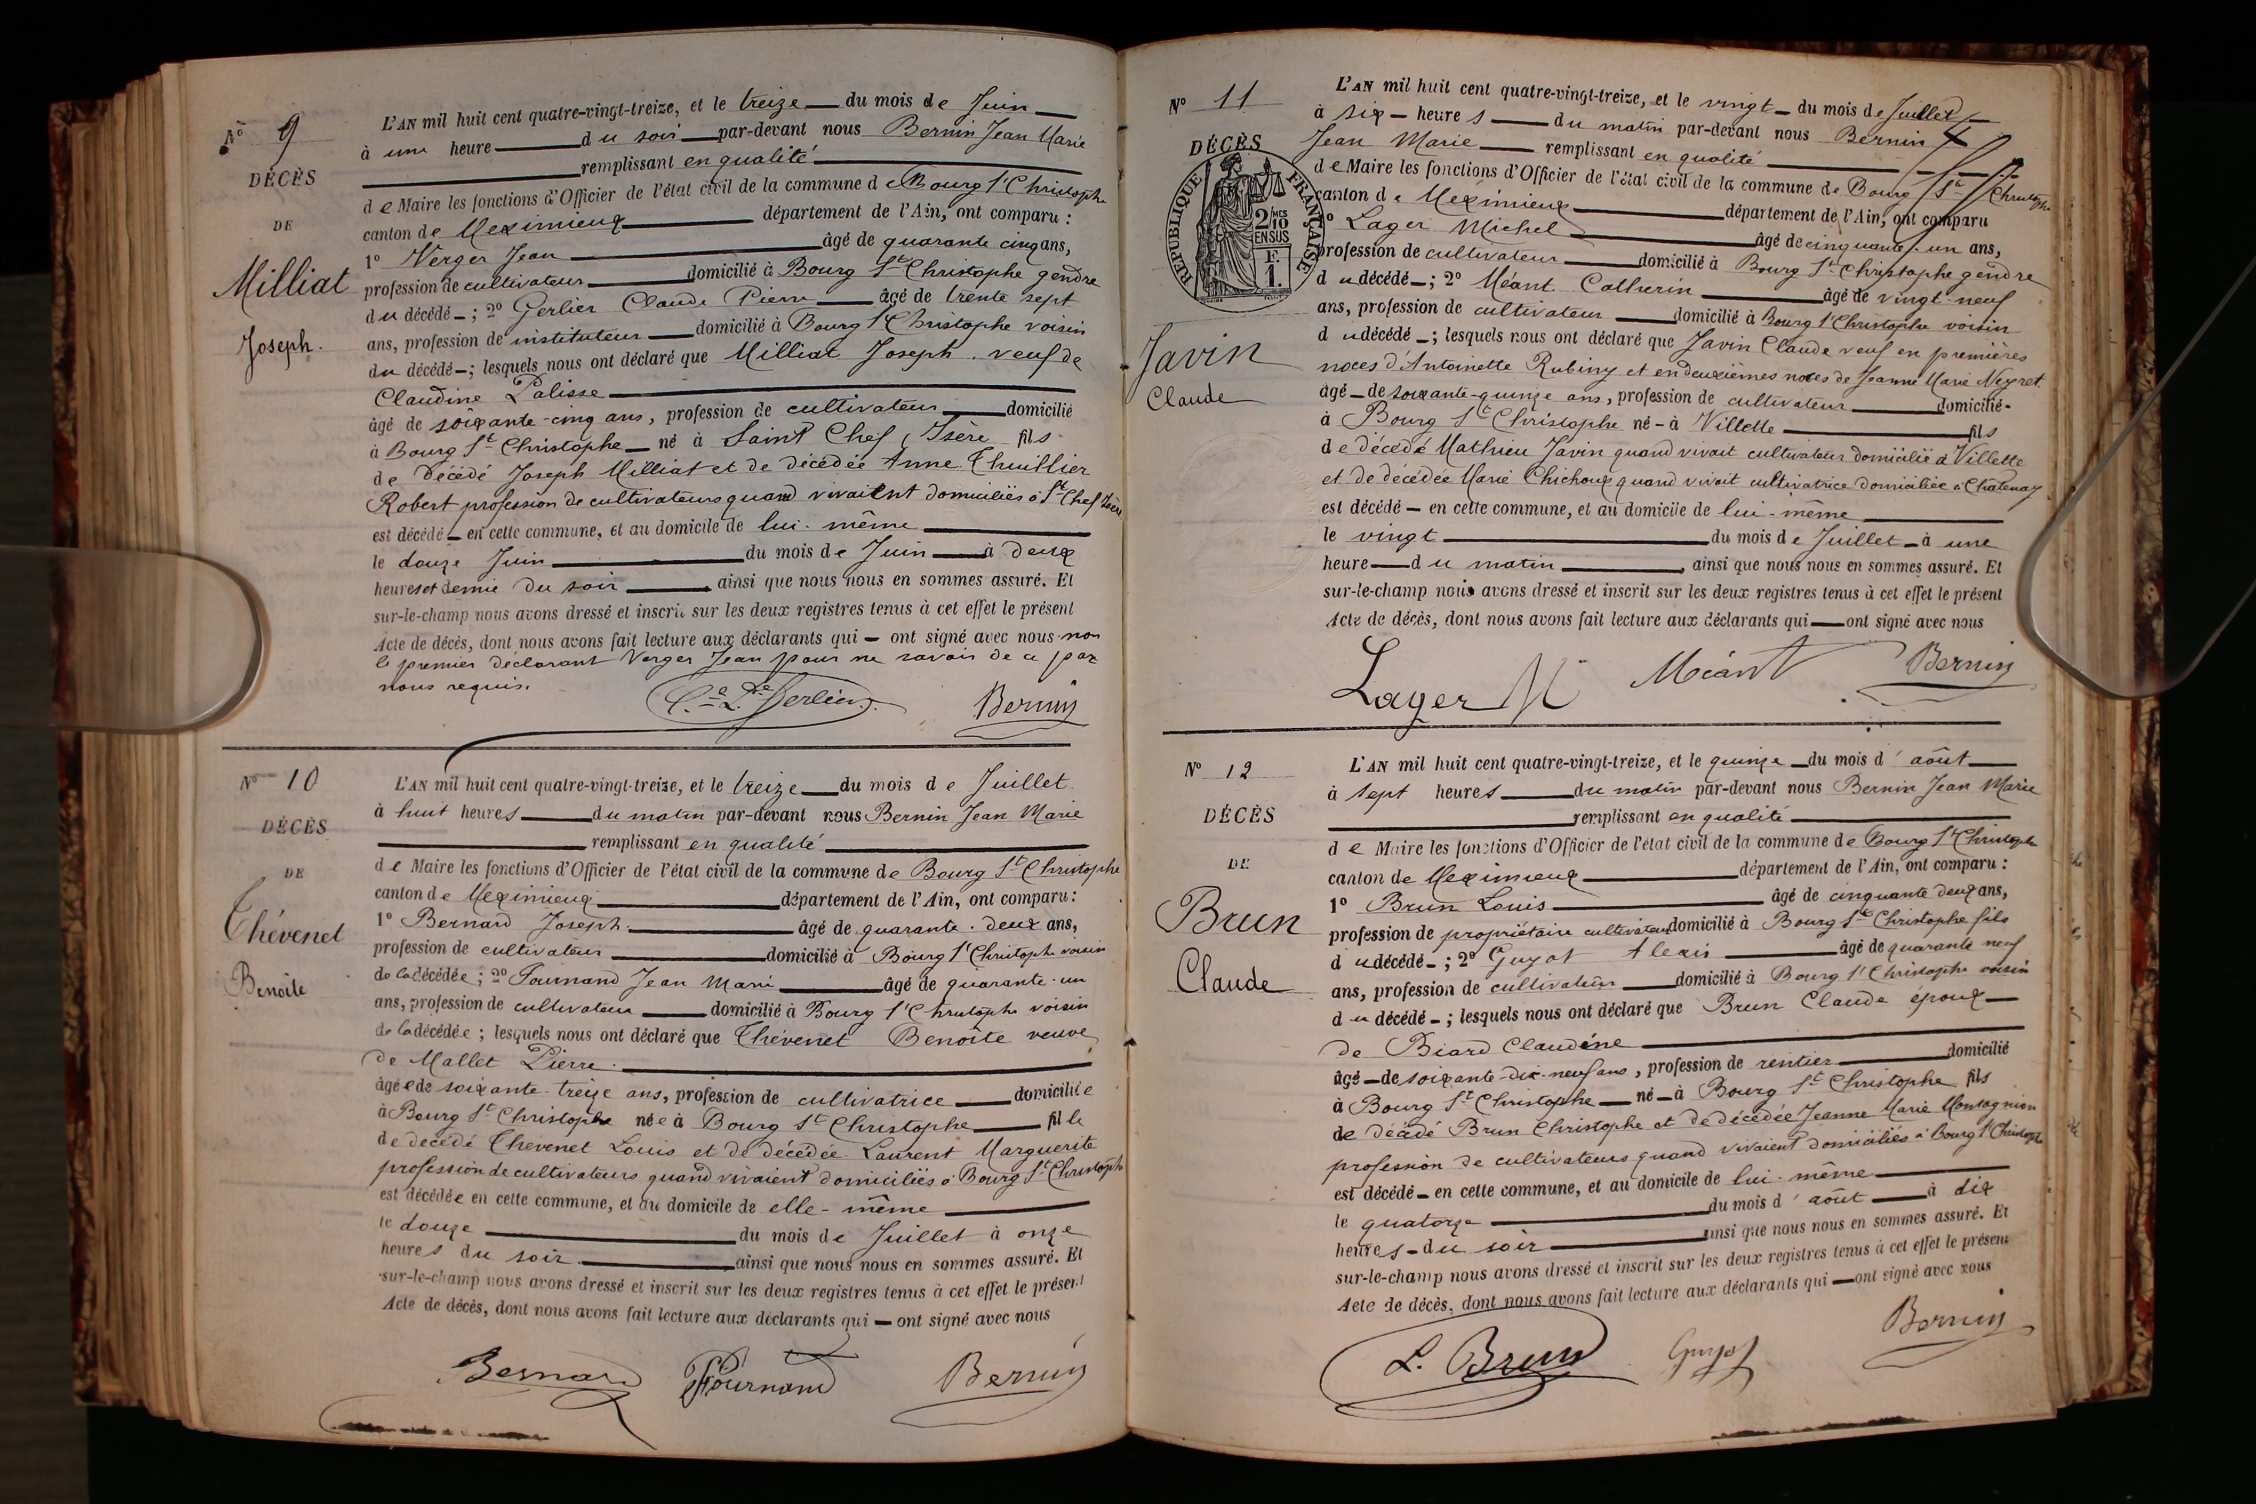 N° 9
DÉCÈS
DE
Milliat
Joseph.
L'AN mil huit cent quatre-vingt-treize, et le treize du mois de Juin
à une heure du soir par-devant nous Bernin Jean Marie
remplissant en qualité
de Maire les fonctions d'Officier de l'état civil de la commune de Bourg St Christophe
canton de Meximieux département de l'Ain, ont comparu :
1° Verger Jean âgé de quarante cinq ans,
profession de cultivateur domicilié à Bourg St Christophe gendre
du décédé ; 2° Gerlier Claude Pierre âgé de trente sept
ans, profession de instituteur domicilié à Bourg St Christophe voisin
du décédé ; lesquels nous ont déclaré que Milliat Joseph. veuf de
Claudine Palisse
âgé de soixante-cinq ans, profession de cultivateur domicilié
à Bourg St Christophe né à Saint Chef, Isère fils
de décédé Joseph Milliat et de décédée Anne Thuillier
Robert profession de cultivateurs quand vivaient domiciliés à St Chef Isère
est décédé en cette commune, et au domicile de lui-même
le douze Juin du mois de Juin à deux
heures et demie du soir ainsi que nous nous en sommes assuré. Et
sur-le-champ nous avons dressé et inscrit sur les deux registres tenus à cet effet le présent
Acte de décès, dont nous avons fait lecture aux déclarants qui ont signé avec nous non
le premier déclarant Verger Jean pour ne savoir de ce par
nous requis.
Gerlier Bernin
N° 10
DÉCÈS
DE
Thévenet
Benoite
L'AN mil huit cent quatre-vingt-treize, et le treize du mois de Juillet
à huit heures du matin par-devant nous Bernin Jean Marie
remplissant en qualité
de Maire les fonctions d'Officier de l'état civil de la commune de Bourg St Christophe
canton de Meximieux département de l'Ain, ont comparu :
1° Bernard Joseph. âgé de quarante-deux ans,
profession de cultivateur domicilié à Bourg St Christophe voisin
de la décédée ; 2° Fournand Jean Marie âgé de quarante-un
ans, profession de cultivateur domicilié à Bourg St Christophe voisin
de la décédée ; lesquels nous ont déclaré que Thévenet Benoîte veuve
de Mallet Pierre.
âgée de soixante-treize ans, profession de cultivatrice domiciliée
à Bourg St Christophe née à Bourg St Christophe fille
de décédé Thévenet Louis et de décédée Laurent Marguerite
profession de cultivateurs quand vivaient domiciliés à Bourg St Christophe
est décédée en cette commune, et au domicile de elle-même
le douze du mois de Juillet à onze
heures du soir ainsi que nous nous en sommes assuré. Et
sur-le-champ nous avons dressé et inscrit sur les deux registres tenus à cet effet le présent
Acte de décès, dont nous avons fait lecture aux déclarants qui ont signé avec nous
Bernard Fournand Bernin
N° 11
DÉCÈS
RÉPUBLIQUE FRANÇAISE
2/10 MES
EN SUS
F.
1.
Javin
Claude
L'AN mil huit cent quatre-vingt-treize, et le vingt du mois de Juillet
à six heures du matin par-devant nous Bernin
Jean Marie remplissant en qualité
de Maire les fonctions d'Officier de l'état civil de la commune de Bourg St Christophe
canton de Meximieux département de l'Ain, ont comparu
1° Lager Michel âgé de cinquante-un ans,
profession de cultivateur domicilié à Bourg St Christophe gendre
du décédé ; 2° Méant Catherin âgé de vingt-neuf
ans, profession de cultivateur domicilié à Bourg St Christophe voisin
du décédé ; lesquels nous ont déclaré que Javin Claude veuf en premières
noces d'Antoinette Rubiny et en deuxièmes noces de Jeanne Marie Neyret
âgé de soixante-quinze ans, profession de cultivateur domicilié
à Bourg St Christophe né à Villette fils
de décédé Mathieu Javin quand vivait cultivateur domicilié à Villette
et de décédée Marie Chichoux quand vivait cultivatrice domiciliée à Chatenay
est décédé en cette commune, et au domicile de lui-même
le vingt du mois de Juillet à une
heure du matin ainsi que nous nous en sommes assuré. Et
sur-le-champ nous avons dressé et inscrit sur les deux registres tenus à cet effet le présent
Acte de décès, dont nous avons fait lecture aux déclarants qui ont signé avec nous
Lager M Méant Bernin
N° 12
DÉCÈS
DE
Brun
Claude
L'AN mil huit cent quatre-vingt-treize, et le quinze du mois d'août
à sept heures du matin par-devant nous Bernin Jean Marie
remplissant en qualité
de Maire les fonctions d'Officier de l'état civil de la commune de Bourg St Christophe
canton de Meximieux département de l'Ain, ont comparu :
1° Brun Louis âgé de cinquante deux ans,
profession de propriétaire cultivateur domicilié à Bourg St Christophe fils
du décédé ; 2° Guyot Alexis âgé de quarante neuf
ans, profession de cultivateur domicilié à Bourg St Christophe voisin
du décédé ; lesquels nous ont déclaré que Brun Claude époux
de Biard Claudine
âgé de soixante-dix-neuf ans, profession de rentier domicilié
à Bourg St Christophe né à Bourg St Christophe fils
de décédé Brun Christophe et de décédée Jeanne Marie Montagnion
profession de cultivateurs quand vivaient domiciliés à Bourg St Christophe
est décédé en cette commune, et au domicile de lui-même
le quatorze du mois d'août à dix
heures du soir ainsi que nous nous en sommes assuré. Et
sur-le-champ nous avons dressé et inscrit sur les deux registres tenus à cet effet le présent
Acte de décès, dont nous avons fait lecture aux déclarants qui ont signé avec nous
L. Brun Guyot Bernin